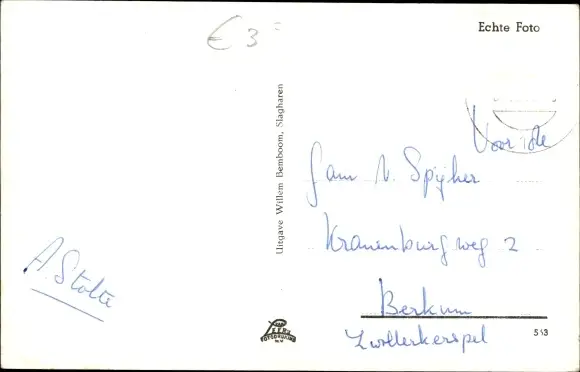 € 3 =
Echte Foto
Voor de
Fam v. Spijker
Kranenburgweg 2
Berkum
Zwollerkerspel
A. Stolte
Uitgave Willem Bemboom, Slagharen
FOTODRUKKERIJ
543